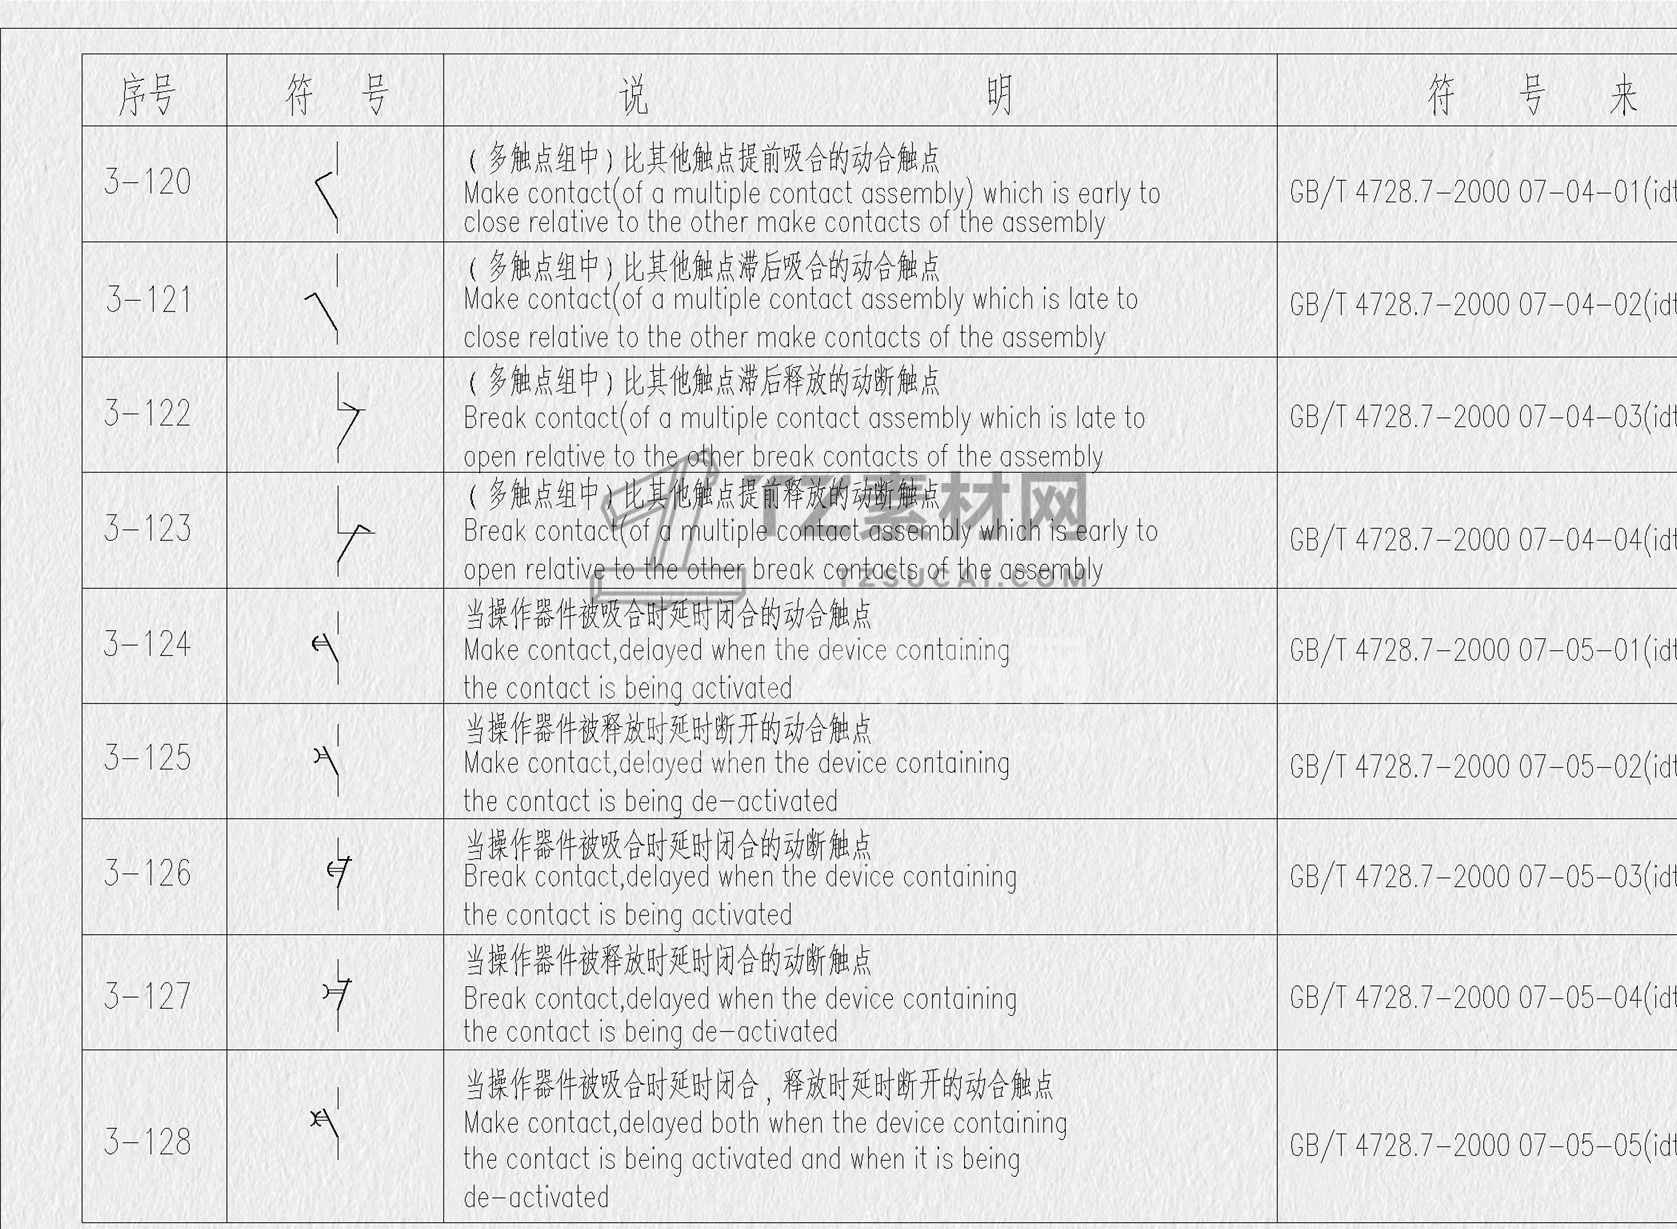 序号 符 号 说 明 符 号 来
3-120
(多触点组中)比其他触点提前吸合的动合触点
Make contact(of a multiple contact assembly) which is early to
close relative to the other make contacts of the assembly
GB/T 4728.7-2000 07-04-01(idt
3-121
(多触点组中)比其他触点滞后吸合的动合触点
Make contact(of a multiple contact assembly which is late to
close relative to the other make contacts of the assembly
GB/T 4728.7-2000 07-04-02(idt
3-122
(多触点组中)比其他触点滞后释放的动断触点
Break contact(of a multiple contact assembly which is late to
open relative to the other break contacts of the assembly
GB/T 4728.7-2000 07-04-03(idt
3-123
(多触点组中)比其他触点提前释放的动断触点
Break contact(of a multiple contact assembly which is early to
open relative to the other break contacts of the assembly
GB/T 4728.7-2000 07-04-04(idt
TZ素材网
TZSUCAI.COM
3-124
当操作器件被吸合时延时闭合的动合触点
Make contact,delayed when the device containing
the contact is being activated
GB/T 4728.7-2000 07-05-01(idt
3-125
当操作器件被释放时延时断开的动合触点
Make contact,delayed when the device containing
the contact is being de-activated
GB/T 4728.7-2000 07-05-02(idt
3-126
当操作器件被吸合时延时闭合的动断触点
Break contact,delayed when the device containing
the contact is being activated
GB/T 4728.7-2000 07-05-03(idt
3-127
当操作器件被释放时延时闭合的动断触点
Break contact,delayed when the device containing
the contact is being de-activated
GB/T 4728.7-2000 07-05-04(idt
3-128
当操作器件被吸合时延时闭合，释放时延时断开的动合触点
Make contact,delayed both when the device containing
the contact is being activated and when it is being
de-activated
GB/T 4728.7-2000 07-05-05(idt